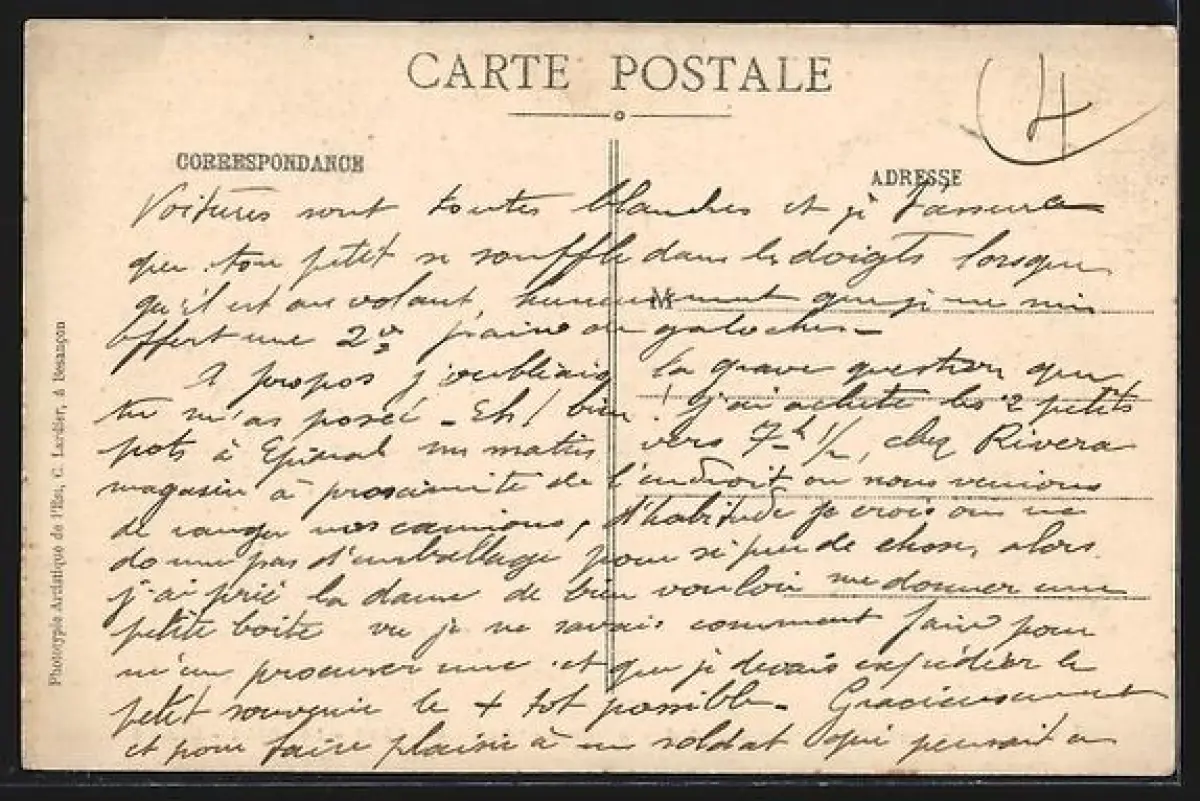 CARTE POSTALE
4
CORRESPONDANCE
ADRESSE
Voitures sont toutes blanches et je t'assure
que ton petit se souffle dans les doigts lorsque
qu'il est au volant, heureusement que je me suis
M
offert une 2e paire de galoches -
A propos j'oubliais la grave question que
tu m'as posée - Eh! bien! j'ai acheté les 2 petits
pots à Epinal un matin vers 7h 1/2, chez Rivera
magasin à proximité de l'endroit où nous venions
de ranger nos camions, d'habitude je crois on ne
donne pas d'emballage pour si peu de chose, alors
j'ai prié la dame de bien vouloir me donner une
petite boite vu je ne savais comment faire pour
m'en procurer une et que je devais expédier le
petit souvenir le + tot possible - Gracieusement
et pour faire plaisir à un soldat qui pensait a
Phototypie Artistique de l'Est, C. Lardier, à Besançon